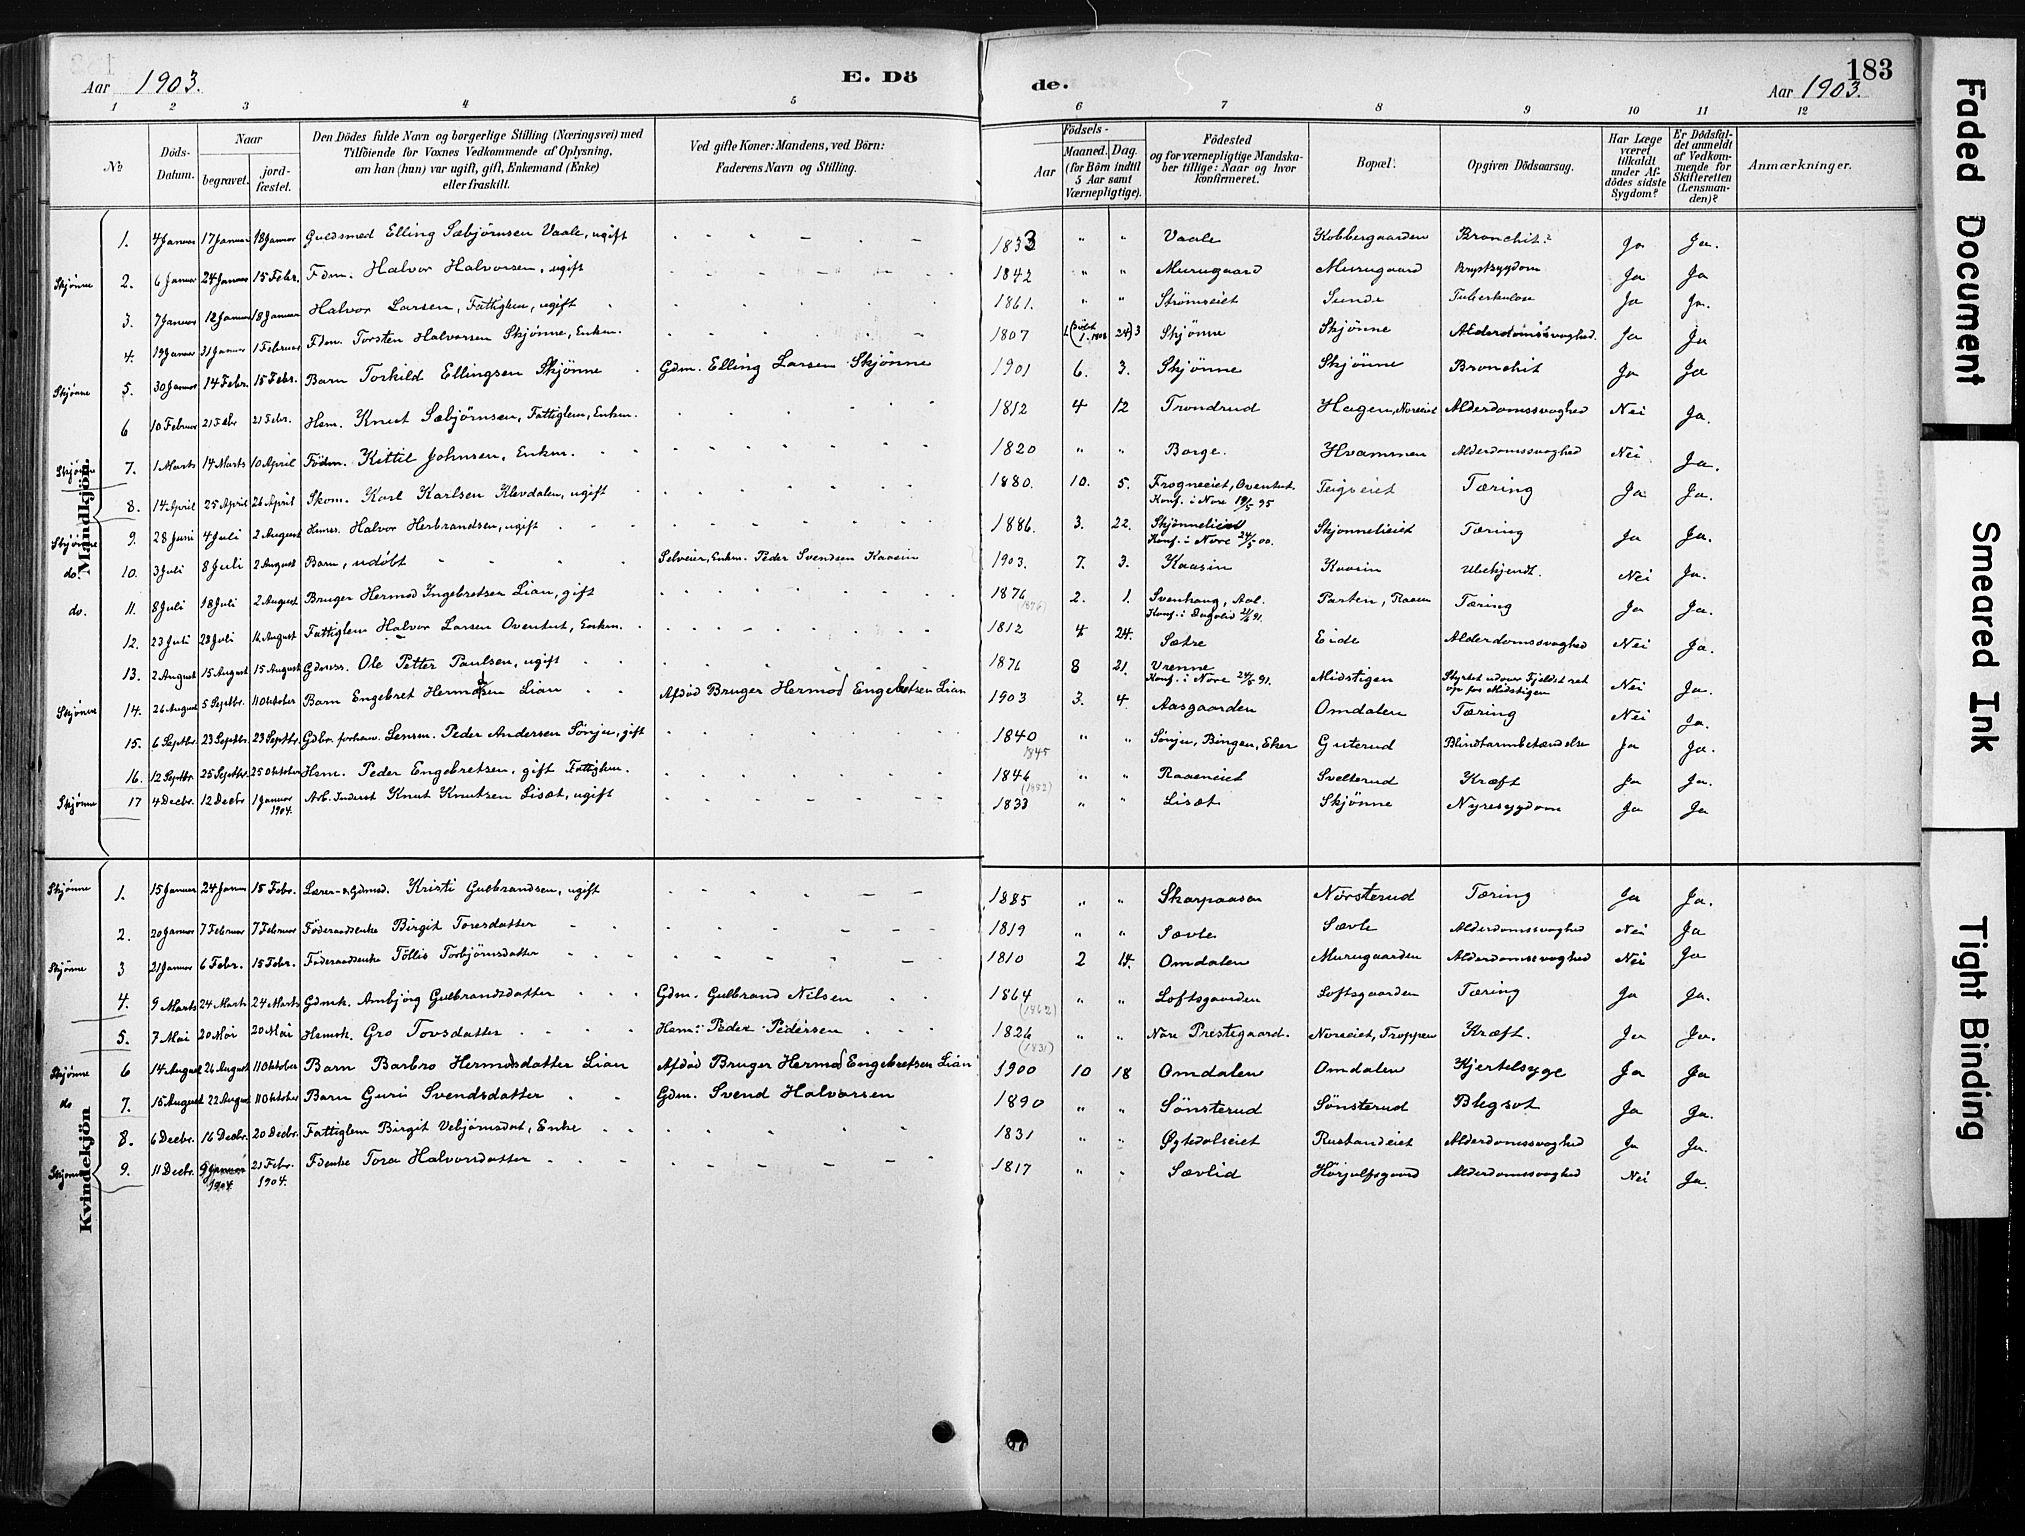 Aar 1903. E. Dö de. 183
Aar 1903.
1 2 3 4 5 6 7 8 9 10 11 12
No
Döds-Datum.
Naar
begravet.
jord-fæstet.
Den Dödes fulde Navn og borgerlige Stilling (Næringsvei) med
Tilföiende for Voxnes Vedkommende af Oplysning,
om han (hun) var ugift, gift, Enkemand (Enke)
eller fraskilt.
Ved gifte Koner: Mandens, ved Börn:
Faderens Navn og Stilling.
Födsels-
Aar
Maaned. Dag.
(for Börn indtil
5 Aar samt
Værnepligtige).
Födested
og for værnepligtige Mandska-
ber tillige: Naar og hvor
konfirmeret.
Bopæl.
Opgiven Dödsaarsag.
Har Læge
været
tilkaldt
under Af-
dödes sidste
Sygdom?
Er Dödsfal-
det anmeldt
af Vedkom-
mende for
Skifteretten
(Lensman-
den)?
Anmærkninger.
Mandkjön.
1. 4 Januar 17 Januar 18 Januar Guldsmed Elling Sæbjørnsen Vaale, ugift 1833 " " Vaale Kobbergaarden Bronchit? Ja Ja.
Skjønne 2. 6 Januar 24 Januar 15 Febr. Fdm. Halvor Halvorsen, ugift 1842 " " Murugaard Murugaard Brystsygdom Ja Ja
3. 7 Januar 12 Januar 18 Januar Halvor Larsen, Fattiglem, ugift 1861. " " Strømseiet Sunde Tuberkulose Ja Ja.
4. 19 Januar 31 Januar 1 Februar Fdm. Torsten Halvorsen Skjønne, Enkm. 1807 Skjønne Skjønne Alderdomssvaghed. Ja Ja
Skjønne 5. 30 Januar 14 Febr. 15 Febr. Barn Torkild Ellingsen Skjønne Gdm. Elling Larsen Skjønne 1901 6. 3. Skjønne Skjønne Bronchit Ja Ja
6 10 Februar 21 Febr 21 Febr. Hsm. Knut Sæbjørnsen, Fattiglem, Enkm. 1812 4 12 Trondrud Hagen, Noreeiet Alderdomssvaghed Nei Ja.
Skjønne 7. 1 Marts 14 Marts 10 April Födm. Kittil Johnsen, Enkm. 1820 " " Borge. Hvammen Alderdomssvaghed Nei Ja.
8. 14 April 25 April 26 April Skom. Karl Karlsen Klevdalen, ugift 1880. 10. 5. Frogneeiet, Oventut. Teigseiet Tæring Ja Ja.
Konf. i Nore 19/5 95
Skjønne 9. 28 Juni 4 Juli 2 August Halvor Herbrandsen, ugift 1886. 3. 22. Skjønnelieiet Skjønnelieiet Tæring Ja Ja.
Konf. i Nore 24/5 00.
do. 10. 3 Juli 8 Juli 2 August Barn, udöbt Selveier, Enkm. Peder Svendsen Kaasin 1903. 7. 3. Kaasin Kaasin Ubekjendt. Nei Ja.
do. 11. 8 Juli 18 Juli 2 August Bruger Hermod Ingebretsen Lian, gift 1876 (1876) 2. 1. Svenhaug, Aal. Parten, Raaen Tæring Ja Ja.
12. 23 Juli 28 Juli 16 August Fattiglem Halvor Larsen Oventut, Enkm. 1812 4 24. Sætre Eide Alderdomssvaghed Nei Ja.
13. 2 August 15 August 15 August Ole Petter Paulsen, ugift 1876 8 21. Vrenne Midstigen Styrtet udover Fjeldet ret Nei Ja.
Konf. i Nore 24/5 91. op for Midstigen
Skjønne 14. 26 August 5 Septbr. 11 Oktober Barn Engebret Hermodsen Lian Afdöd Bruger Hermod Engebretsen Lian 1903 3. 4. Aasgaarden Omdalen Tæring Nei Ja.
15. 6 Septbr. 23 Septbr. 23 Septbr. Gdbr. forhenv. Lensm. Peder Andersen Sönju, gift 1840 1845 " " Sönju, Bingen, Eker Guterud Blindtarmbetændelse Ja Ja.
16. 12 Septbr. 25 Septbr. 25 Oktober Hsm. Peder Engebretsen, gift Fattiglem. 1846 (1852) " " Raaeneiet Svelterud Kræft Ja Ja.
Skjønne 17 4 Decbr. 12 Decbr 1 Januar 1904. Arb. Inderst Knut Knutsen Lisæt, ugift 1833 " " Lisæt Skjönne Nyresygdom Ja Ja
Kvindekjön
Skjønne 1. 15 Januar 24 Janu 15 Febr. Kristi Gulbrandsen, ugift 1885 " " Skarpaasen Nörsterud Tæring Ja Ja.
2. 20 Januar 7 Februar 7 Februar Föderaadsenke Birgit Toresdatter 1819 " " Sævle Sævle Alderdomssvaghed Nei Ja
Skjønne 3 21 Januar 6 Febr. 15 Febr. Föderaadsenke Töllis Torbjörnsdatter 1810 2 14. Omdalen Murugaarden Alderdomssvaghed Nei Ja
4. 9 Marts 24 Marts 24 Marts Gdmk. Ambjörg Gulbrandsdatter Gdm. Gulbrand Nilsen 1864 (1862) " " Loftsgaarden Loftsgaarden Tæring Ja Ja.
5. 7 Mai 20 Mai 20 Mai Hsmk. Gro Tovsdatter Hsm. Peder Pedersen 1826 (1831) " " Nore Prestegaard. Noreeiet, Troppen Kræft. Ja Ja.
Skjønne 6 14 August 26 August 11 Oktober Barn Barbro Hermodsdatter Lian Afdöd Bruger Hermod Engebretsen Lian 1900 10 18 Omdalen Omdalen Kjertelsyge Ja Ja
do 7. 15 August 22 August 11 Oktober Barn Guri Svendsdatter Gdm. Svend Halvorsen 1890 " " Sönsterud Sönsterud Blegsot Ja Ja.
8. 6 Decbr. 16 Decbr. 20 Decbr. Fattiglem Birgit Vebjörnsdat, Enke 1831 " " Øygedalseiet Rustandeiet Alderdomssvaghed Ja Ja.
Skjønne 9. 11 Decbr. 9 Januar 1904 21 Febr. 1904. Fdenke Tora Halvorsdatter 1817 " " Sævlid Hörjulfsgaard Alderdomssvaghed Nei Ja.
Faded Document
Smeared Ink
Tight Binding